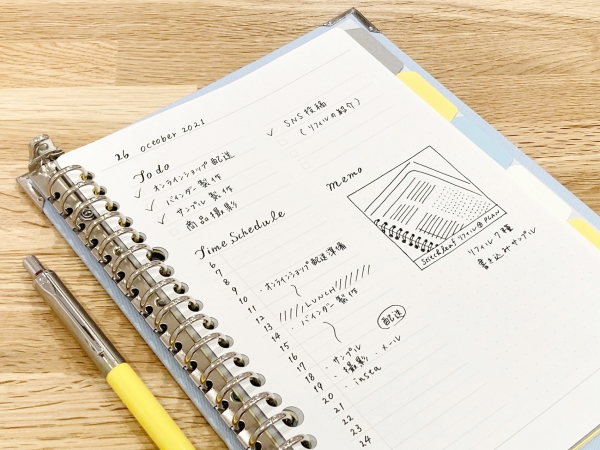 26 october 2021
To do
✓ オンラインショップ配送
✓ バインダー製作
✓ サンプル製作
商品撮影
✓ SNS投稿
(リフィルの紹介)
Time Schedule
6
7
8
9 ・オンラインショップ配送準備
10
11
12 LUNCH
13 ・バインダー製作
14
15 配送
16
17 ・サンプル
18 ・撮影 ・メール
19 ・insta
20
21
22
23
24
memo
リフィル PLAN
リフィル7種
書き込みサンプル